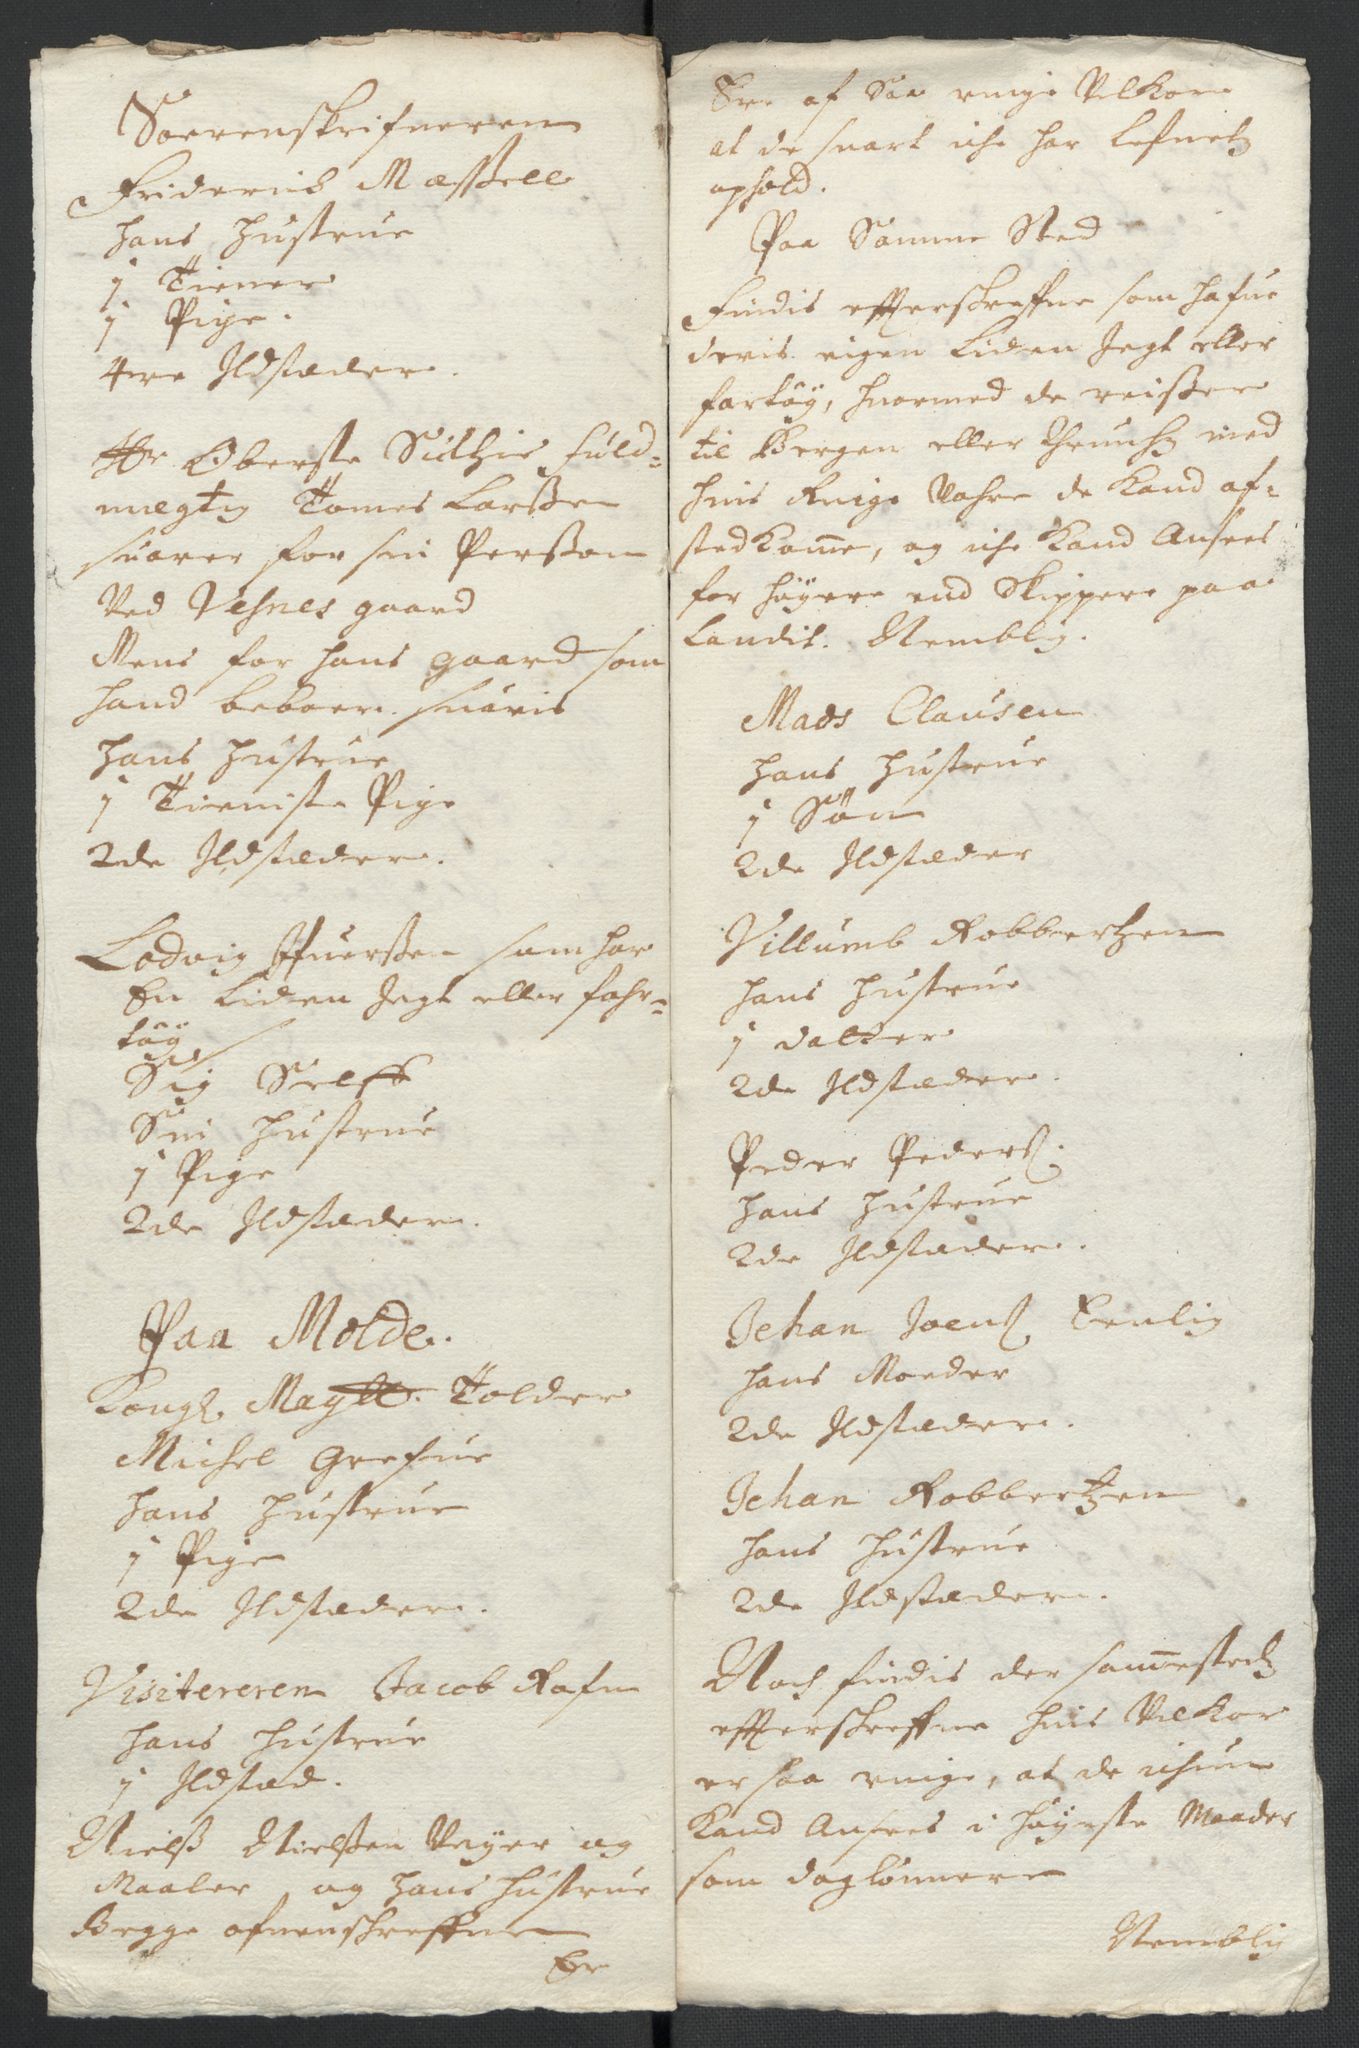 Soerenskrifueren
Friderick Mæssell
hans hustrue
1 Tiener
1 Pige.
4re Ildstæder.
Hr Oberste Sidhie fuld-
mægtig Tomes Larssen
suarer for sin Perssoen
Ved Vesnes gaard
Mens for hans gaard som
hand beboer. suaris
hans hustrue
1 Tieniste Pige
2de Ildstæder.
Lodvig Ifuerssen som har
En liden Jegt eller fahr-
tøy
Sig Selff
Sin hustrue
1 Pige
2de Ildstæder.
Paa Molde.
Kongl. Maytt. Tolder
Michel Grefue
hans hustrue
1 Pige
2de Ildstæder.
Visitereren Jacob Rafn
hans hustrue
1 Ildstæd.
Nielss Nielssen Veyer og
Maaler og hans hustrue
Begge ofuenschreffne
Er
Ere af Saa ringe Velkor
at de snart iche har Lefnetz
ophold.
Paa Samme Sted
Findis effterschreffne som hafue
deris eigen liden Jegt eller
fartøy, huormed de reisser
til Bergen eller Thrunhz med
huis Ringe Vahre de kand af-
sted komme, og iche kand Ansees
for høyere end Skippere paa
Landit. Nemblig.
Mads Clausen
hans hustrue
1 Søn
2de Ildstæder
Villumb Robbertzen
hans hustrue
1 datter
2de Ildstæder.
Peder Peders.
hans hustrue
2de Ildstæder.
Jehan Joens Eenlig
hans Moeder
2de Ildstæder.
Jehan Robbertzen
hans hustrue
2de Ildstæder.
Noch findis der sammestedz
effterschreffne huis Velkor
er saa ringe, at de ichun
kand Ansees i høyeste Maader
som daglønnere
Nemblig